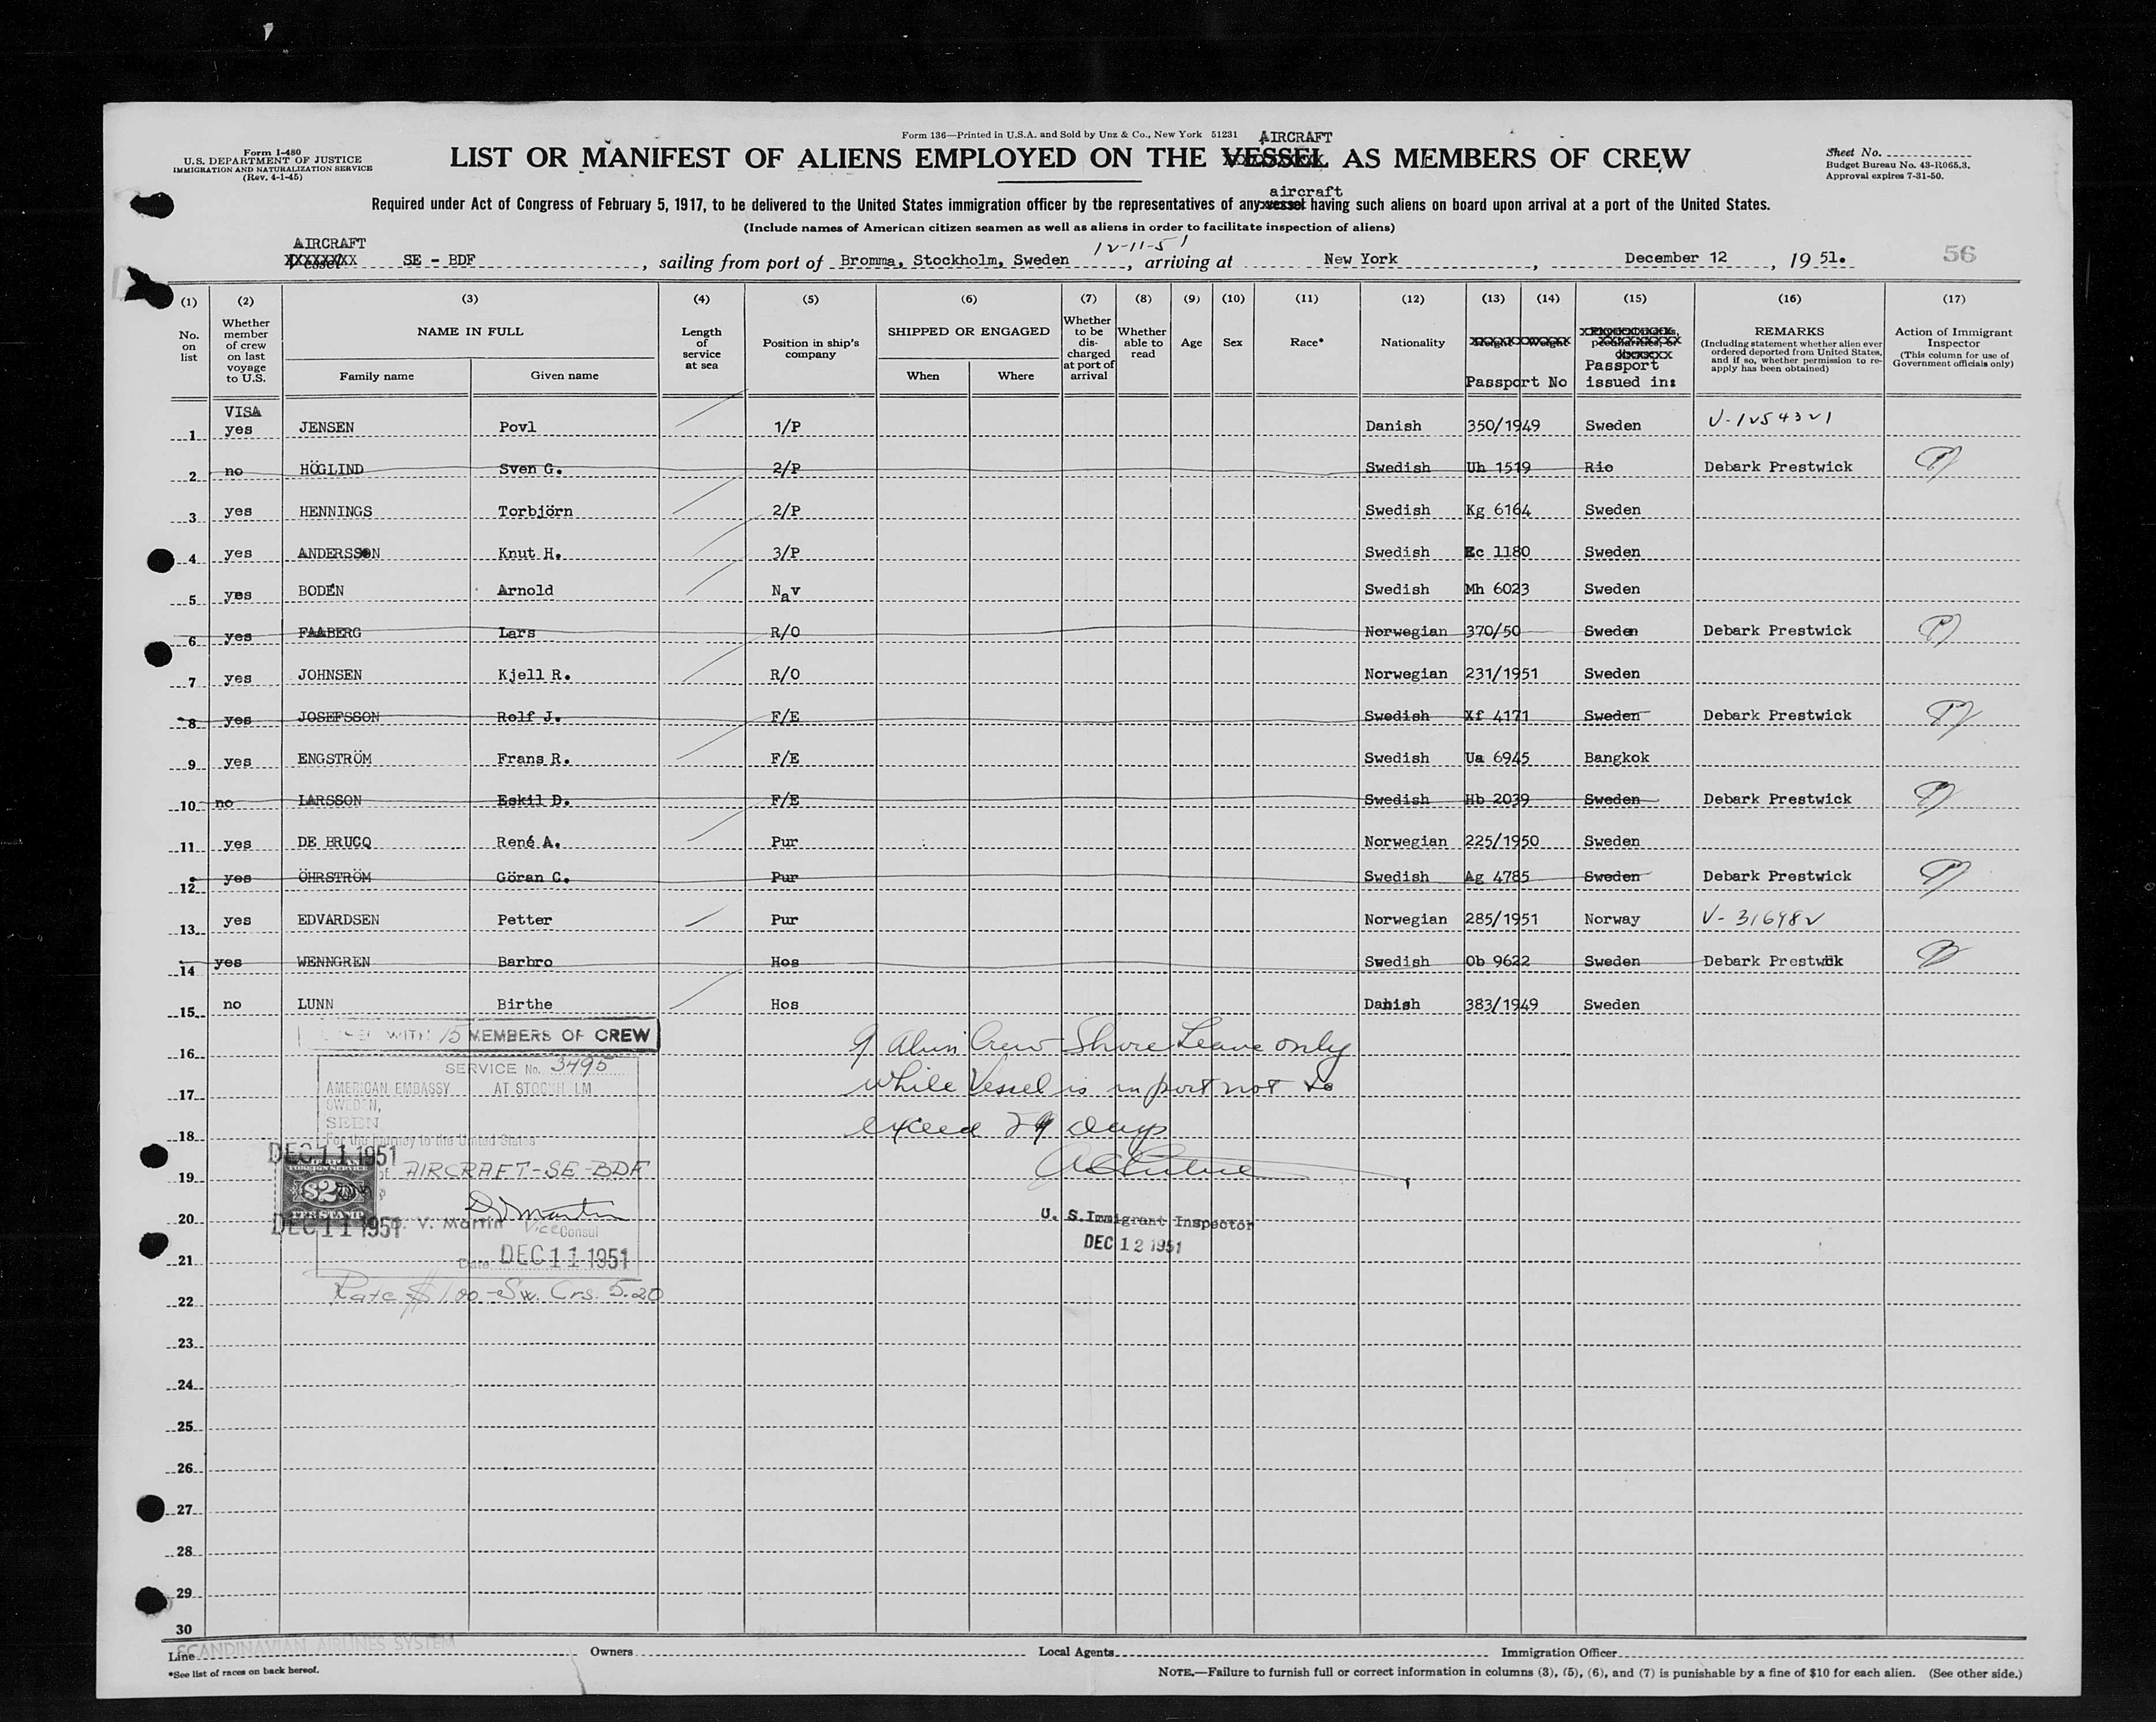 Form 136—Printed in U.S.A. and Sold by Unz & Co., New York 51231
Form I-480
U.S. DEPARTMENT OF JUSTICE
IMMIGRATION AND NATURALIZATION SERVICE
(Rev. 4-1-45)
AIRCRAFT
LIST OR MANIFEST OF ALIENS EMPLOYED ON THE VESSEL AS MEMBERS OF CREW
Sheet No.
Budget Bureau No. 43-R065.3.
Approval expires 7-31-50.
aircraft
Required under Act of Congress of February 5, 1917, to be delivered to the United States immigration officer by the representatives of any vessel having such aliens on board upon arrival at a port of the United States.
(Include names of American citizen seamen as well as aliens in order to facilitate inspection of aliens)
12-11-51
AIRCRAFT
Vessel SE - BDF , sailing from port of Bromma, Stockholm, Sweden , arriving at New York , December 12 , 19 51. 56
(1) (2) (3) (4) (5) (6) (7) (8) (9) (10) (11) (12) (13) (14) (15) (16) (17)
No. on list
Whether member of crew on last voyage to U.S.
NAME IN FULL
Family name Given name
Length of service at sea
Position in ship's company
SHIPPED OR ENGAGED
When Where
Whether to be discharged at port of arrival
Whether able to read
Age
Sex
Race*
Nationality
Height Weight
Passport No
Passport issued in:
REMARKS
(Including statement whether alien ever ordered deported from United States, and if so, whether permission to reapply has been obtained)
Action of Immigrant Inspector
(This column for use of Government officials only)
VISA
1 yes JENSEN Povl 1/P Danish 350/1949 Sweden V-1254321
2 no HÖGLIND Sven G. 2/P Swedish Uh 1519 Rio Debark Prestwick
3 yes HENNINGS Torbjörn 2/P Swedish Kg 6164 Sweden
4 yes ANDERSSON Knut H. 3/P Swedish Ec 1180 Sweden
5 yes BODÉN Arnold Nav Swedish Mh 6023 Sweden
6 yes FAABERG Lars R/O Norwegian 370/50 Sweden Debark Prestwick
7 yes JOHNSEN Kjell R. R/O Norwegian 231/1951 Sweden
8 yes JOSEFSSON Rolf J. F/E Swedish Xf 4171 Sweden Debark Prestwick
9 yes ENGSTRÖM Frans R. F/E Swedish Ua 6945 Bangkok
10 no LARSSON Eskil D. F/E Swedish Hb 2039 Sweden Debark Prestwick
11 yes DE BRUCQ René A. Pur Norwegian 225/1950 Sweden
12 yes ÖHRSTRÖM Göran C. Pur Swedish Ag 4785 Sweden Debark Prestwick
13 yes EDVARDSEN Petter Pur Norwegian 285/1951 Norway V-316982
14 yes WENNGREN Barbro Hos Swedish Ob 9622 Sweden Debark Prestwik
15 no LUNN Birthe Hos Danish 383/1949 Sweden
WITH 15 MEMBERS OF CREW
9 alien Crew Shore Leave only
16
SERVICE No. 3495
AMERICAN EMBASSY AT STOCKHOLM
while Vessel is in port not to
17
SWEDEN,
SEEN
exceed 29 days
18
For the journey to the United States
DEC 11 1951
FOREIGN SERVICE
of AIRCRAFT-SE-BDF
19
$2
FEE STAMP
20
DEC 11 1951
D V Martin
V. Martin Vice Consul
U. S. Immigrant Inspector
DEC 12 1951
21
Date DEC 11 1951
Rate $1.00-Sw. Crs. 5.20
22
23
24
25
26
27
28
29
30
Line SCANDINAVIAN AIRLINES SYSTEM Owners Local Agents Immigration Officer
*See list of races on back hereof.
NOTE.—Failure to furnish full or correct information in columns (3), (5), (6), and (7) is punishable by a fine of $10 for each alien. (See other side.)